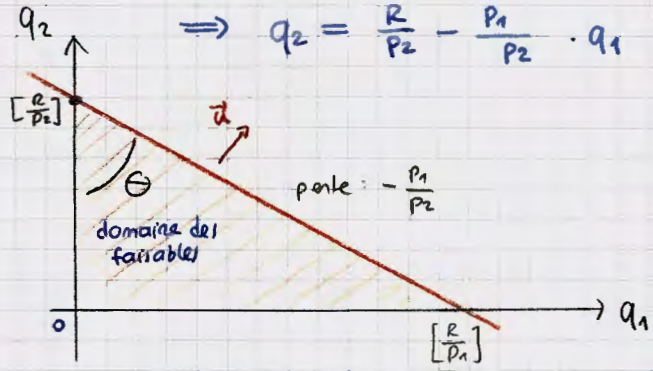 q₂
⇒ q₂ = R/P₂ - P₁/P₂ · q₁
[R/P₂]
u⃗
Θ
pente : - P₁/P₂
domaine des
faisables
0
q₁
[R/P₁]